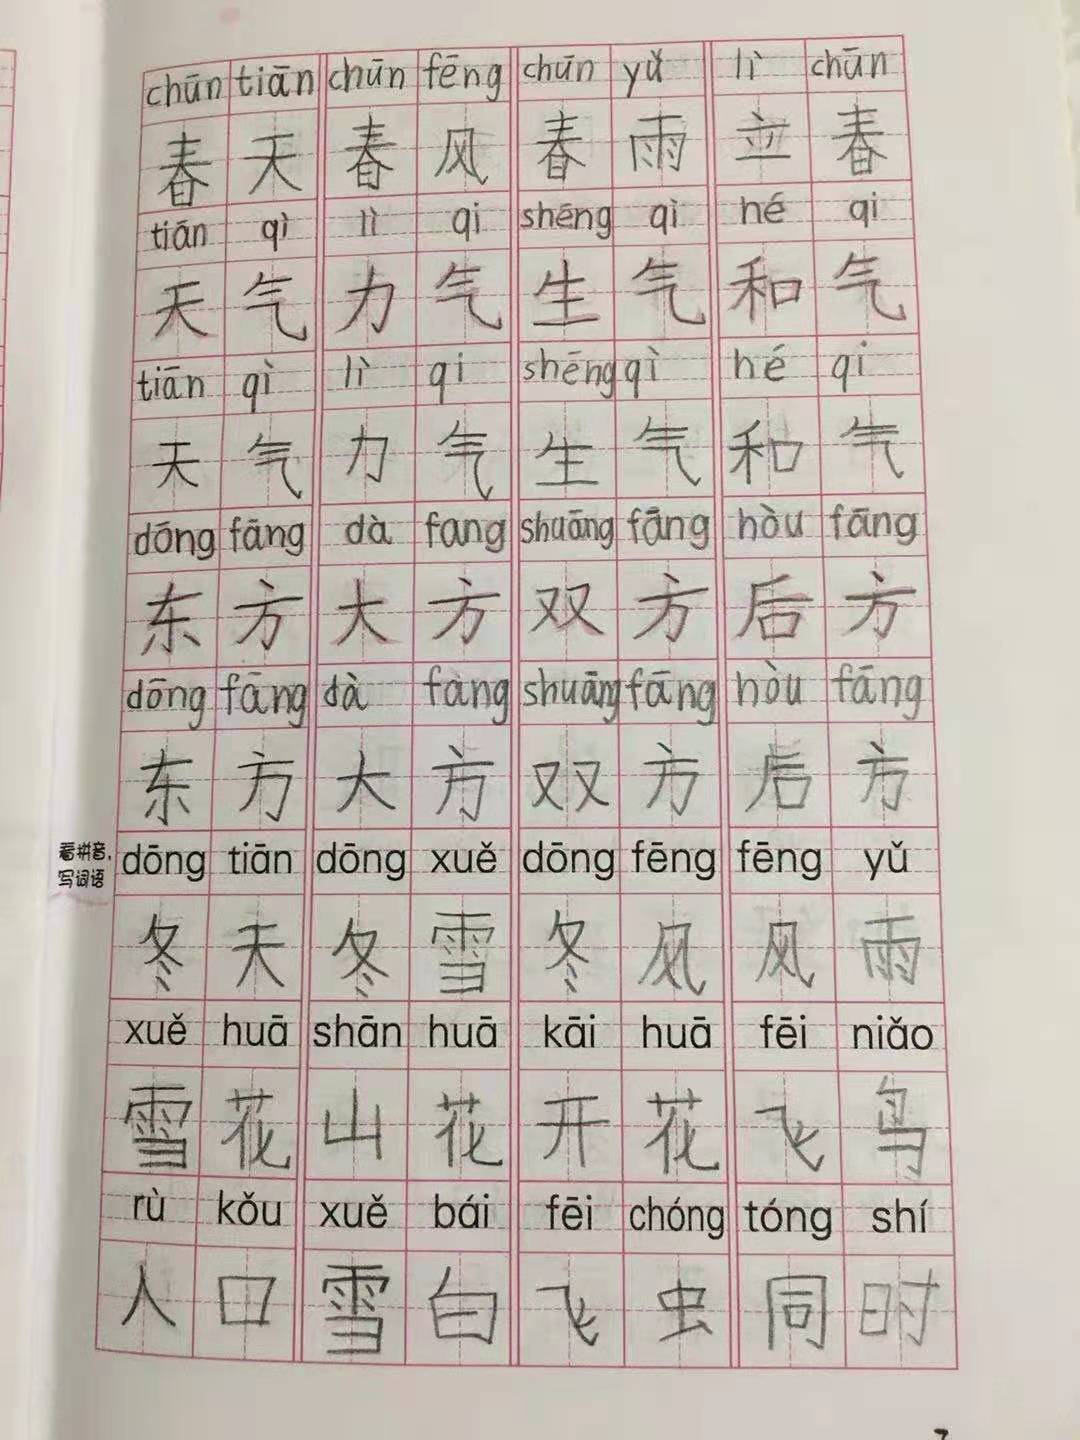 chūn tiān chūn fēng chūn yǔ lì chūn
春天春风春雨立春
tiān qì lì qi shēng qì hé qi
天气力气生气和气
tiān qì lì qi shēng qì hé qi
天气力气生气和气
dōng fāng dà fang shuāng fāng hòu fāng
东方大方双方后方
dōng fāng dà fàng shuāng fāng hòu fāng
东方大方双方后方
看拼音,
写词语
dōng tiān dōng xuě dōng fēng fēng yǔ
冬天冬雪冬风风雨
xuě huā shān huā kāi huā fēi niǎo
雪花山花开花飞鸟
rù kǒu xuě bái fēi chóng tóng shí
人口雪白飞虫同时